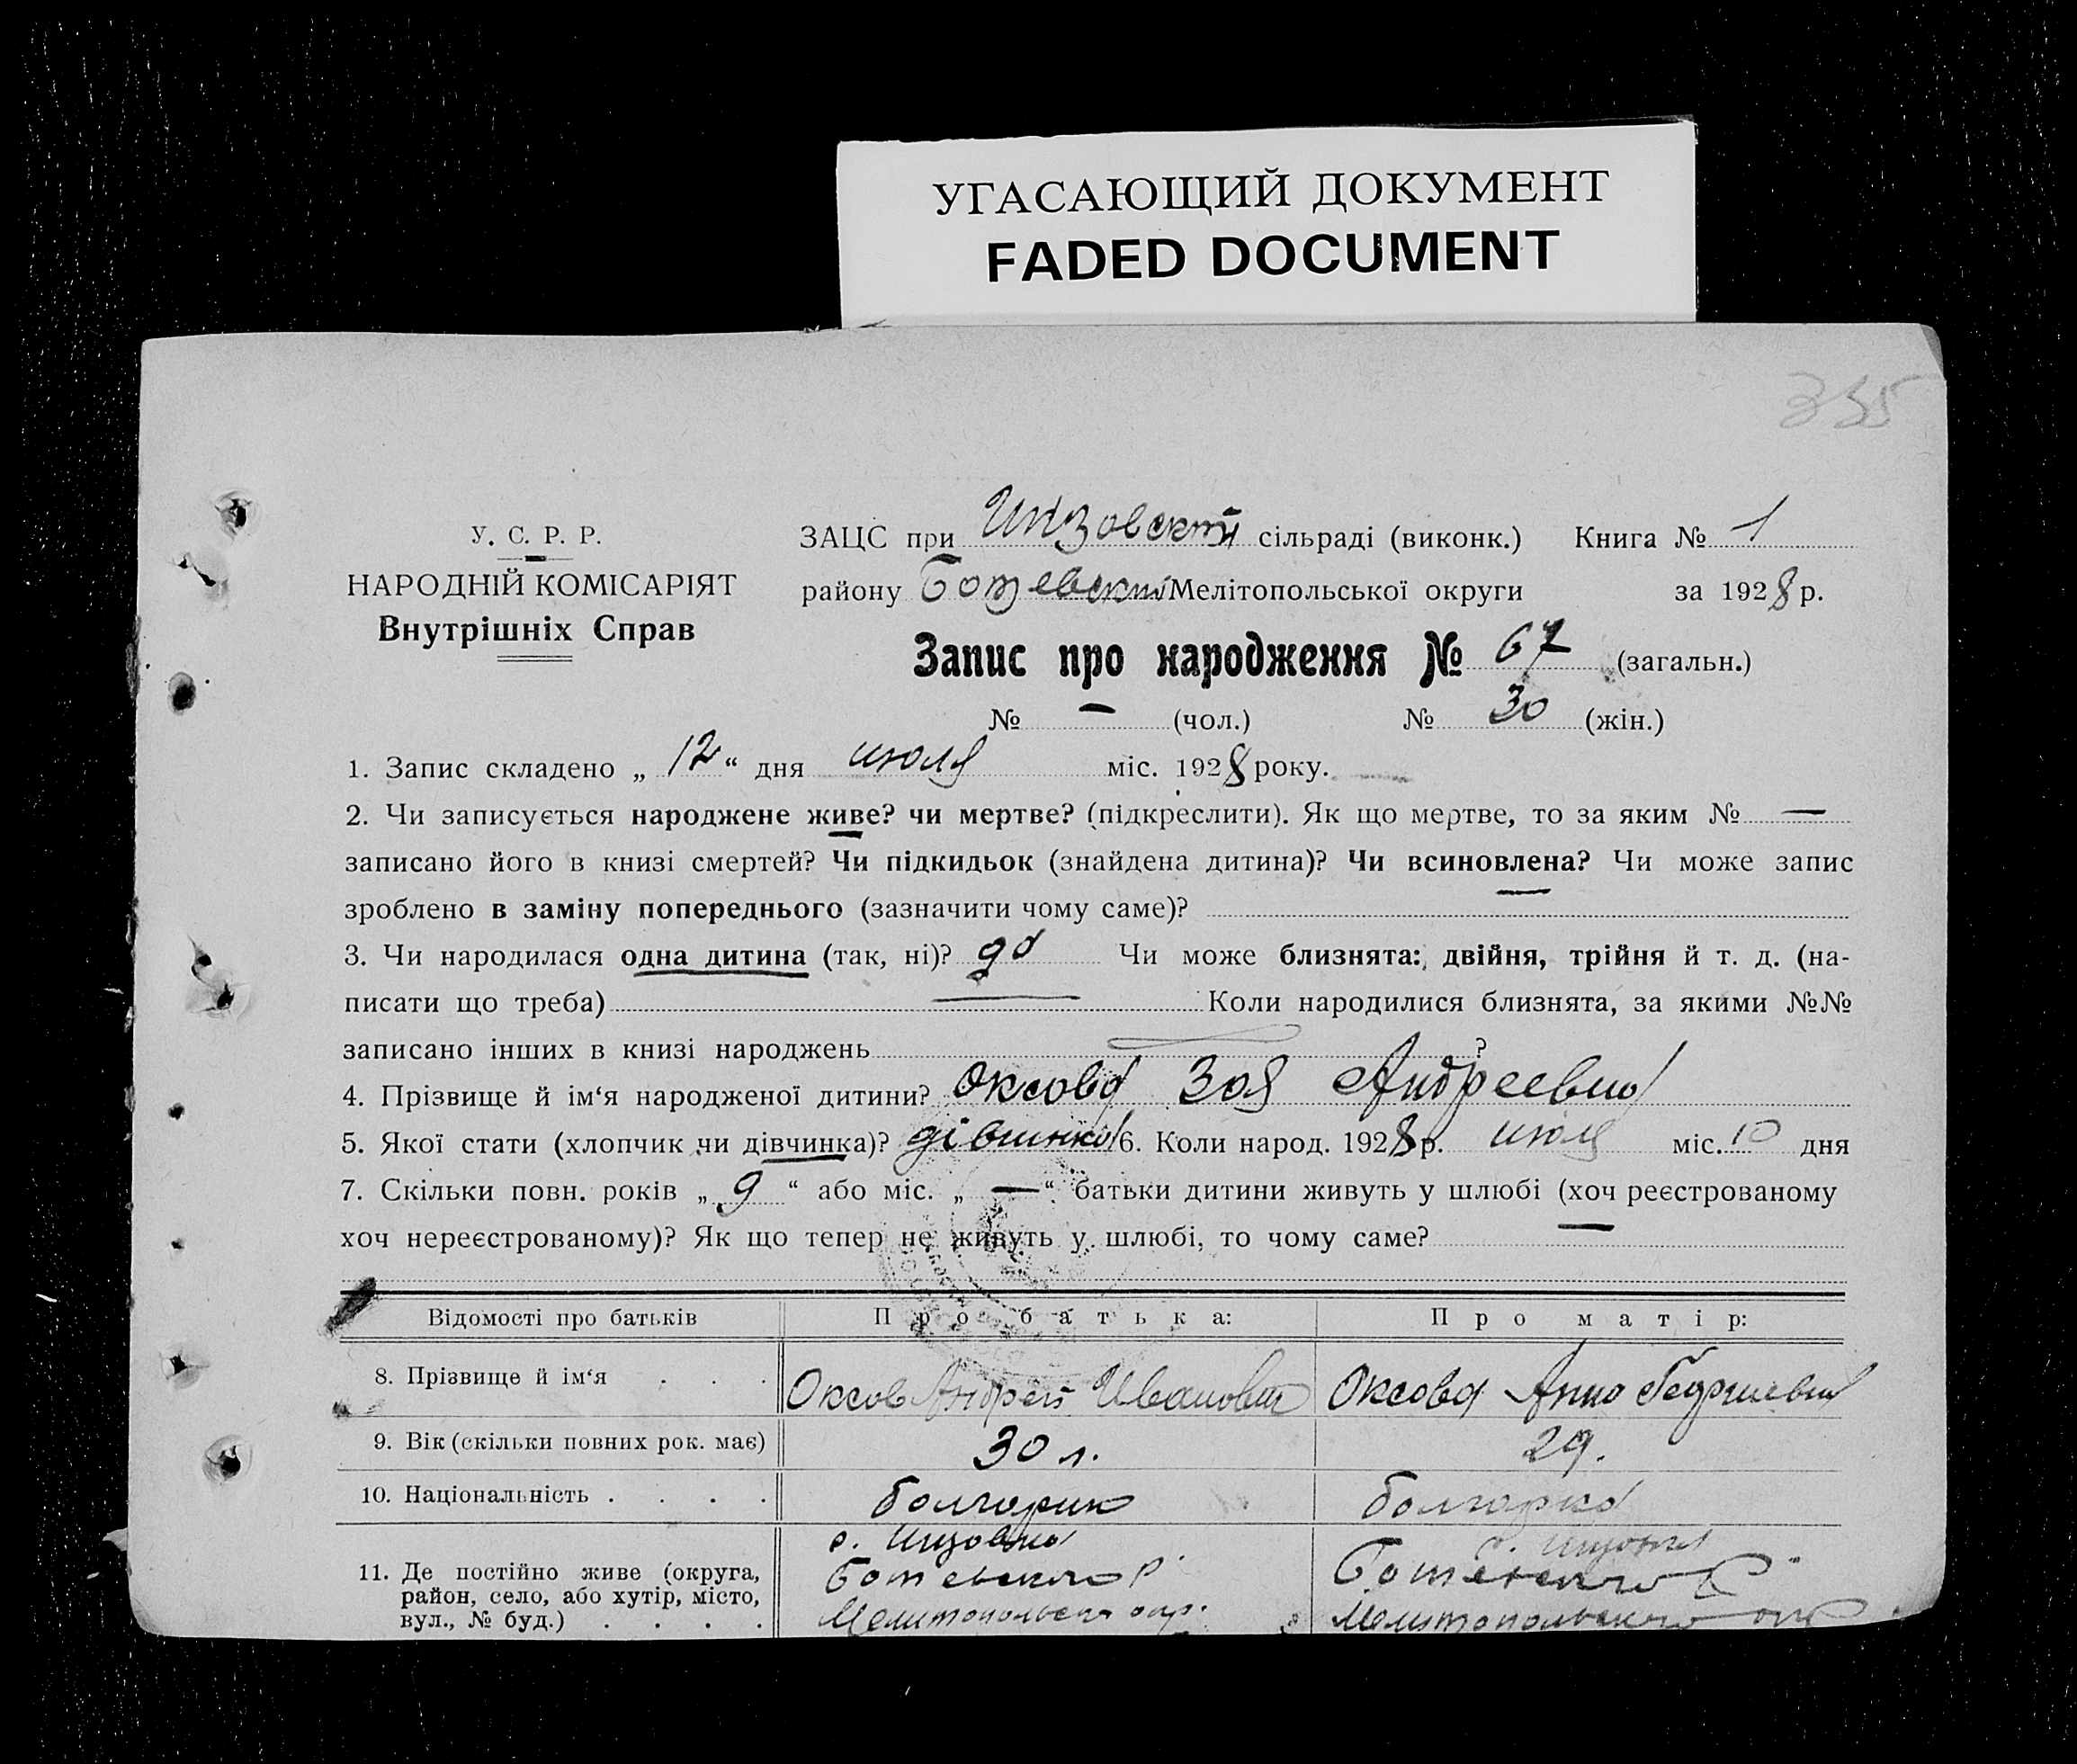 УГАСАЮЩИЙ ДОКУМЕНТ
FADED DOCUMENT
335
У. С. Р. Р.
НАРОДНІЙ КОМІСАРІЯТ
Внутрішніх Справ
ЗАЦС при Инзовский сільраді (виконк.) Книга № 1
району Ботевский Мелітопольської округи за 1928 р.
Запис про народження № 67 (загальн.)
№ — (чол.) № 30 (жін.)
1. Запис складено „ 12 “ дня июля міс. 1928 року.
2. Чи записується народжене живе? чи мертве? (підкреслити). Як що мертве, то за яким № —
записано його в книзі смертей? Чи підкидьок (знайдена дитина)? Чи всиновлена? Чи може запис
зроблено в заміну попереднього (зазначити чому саме)? —
3. Чи народилася одна дитина (так, ні)? да Чи може близнята: двійня, трійня й т. д. (на-
писати що треба) — Коли народилися близнята, за якими №№
записано інших в книзі народжень — ?
4. Прізвище й ім‘я народженої дитини? Оксова Зоя Андреевна
5. Якої стати (хлопчик чи дівчинка)? дівчинка 6. Коли народ. 1928 р. июля міс. 10 дня
7. Скільки повн. років „ 9 “ або міс. „ — “ батьки дитини живуть у шлюбі (хоч реєстрованому
хоч нереєстрованому)? Як що тепер не живуть у шлюбі, то чому саме? —
Відомості про батьків Про батька: Про матір:
8. Прізвище й ім‘я . . . Оксов Андрей Иванович Оксова Анна
9. Вік (скільки повних рок. має) 30 л. 29.
10. Національність . . . . болгарин болгарка
11. Де постійно живе (округа, район, село, або хутір, місто, вул., № буд.) . . . .
с. Инзовка
Ботевского Р.
Мелитопольского окр.
с. Инзовка
Ботевского Р.
Мелитопольского окр.